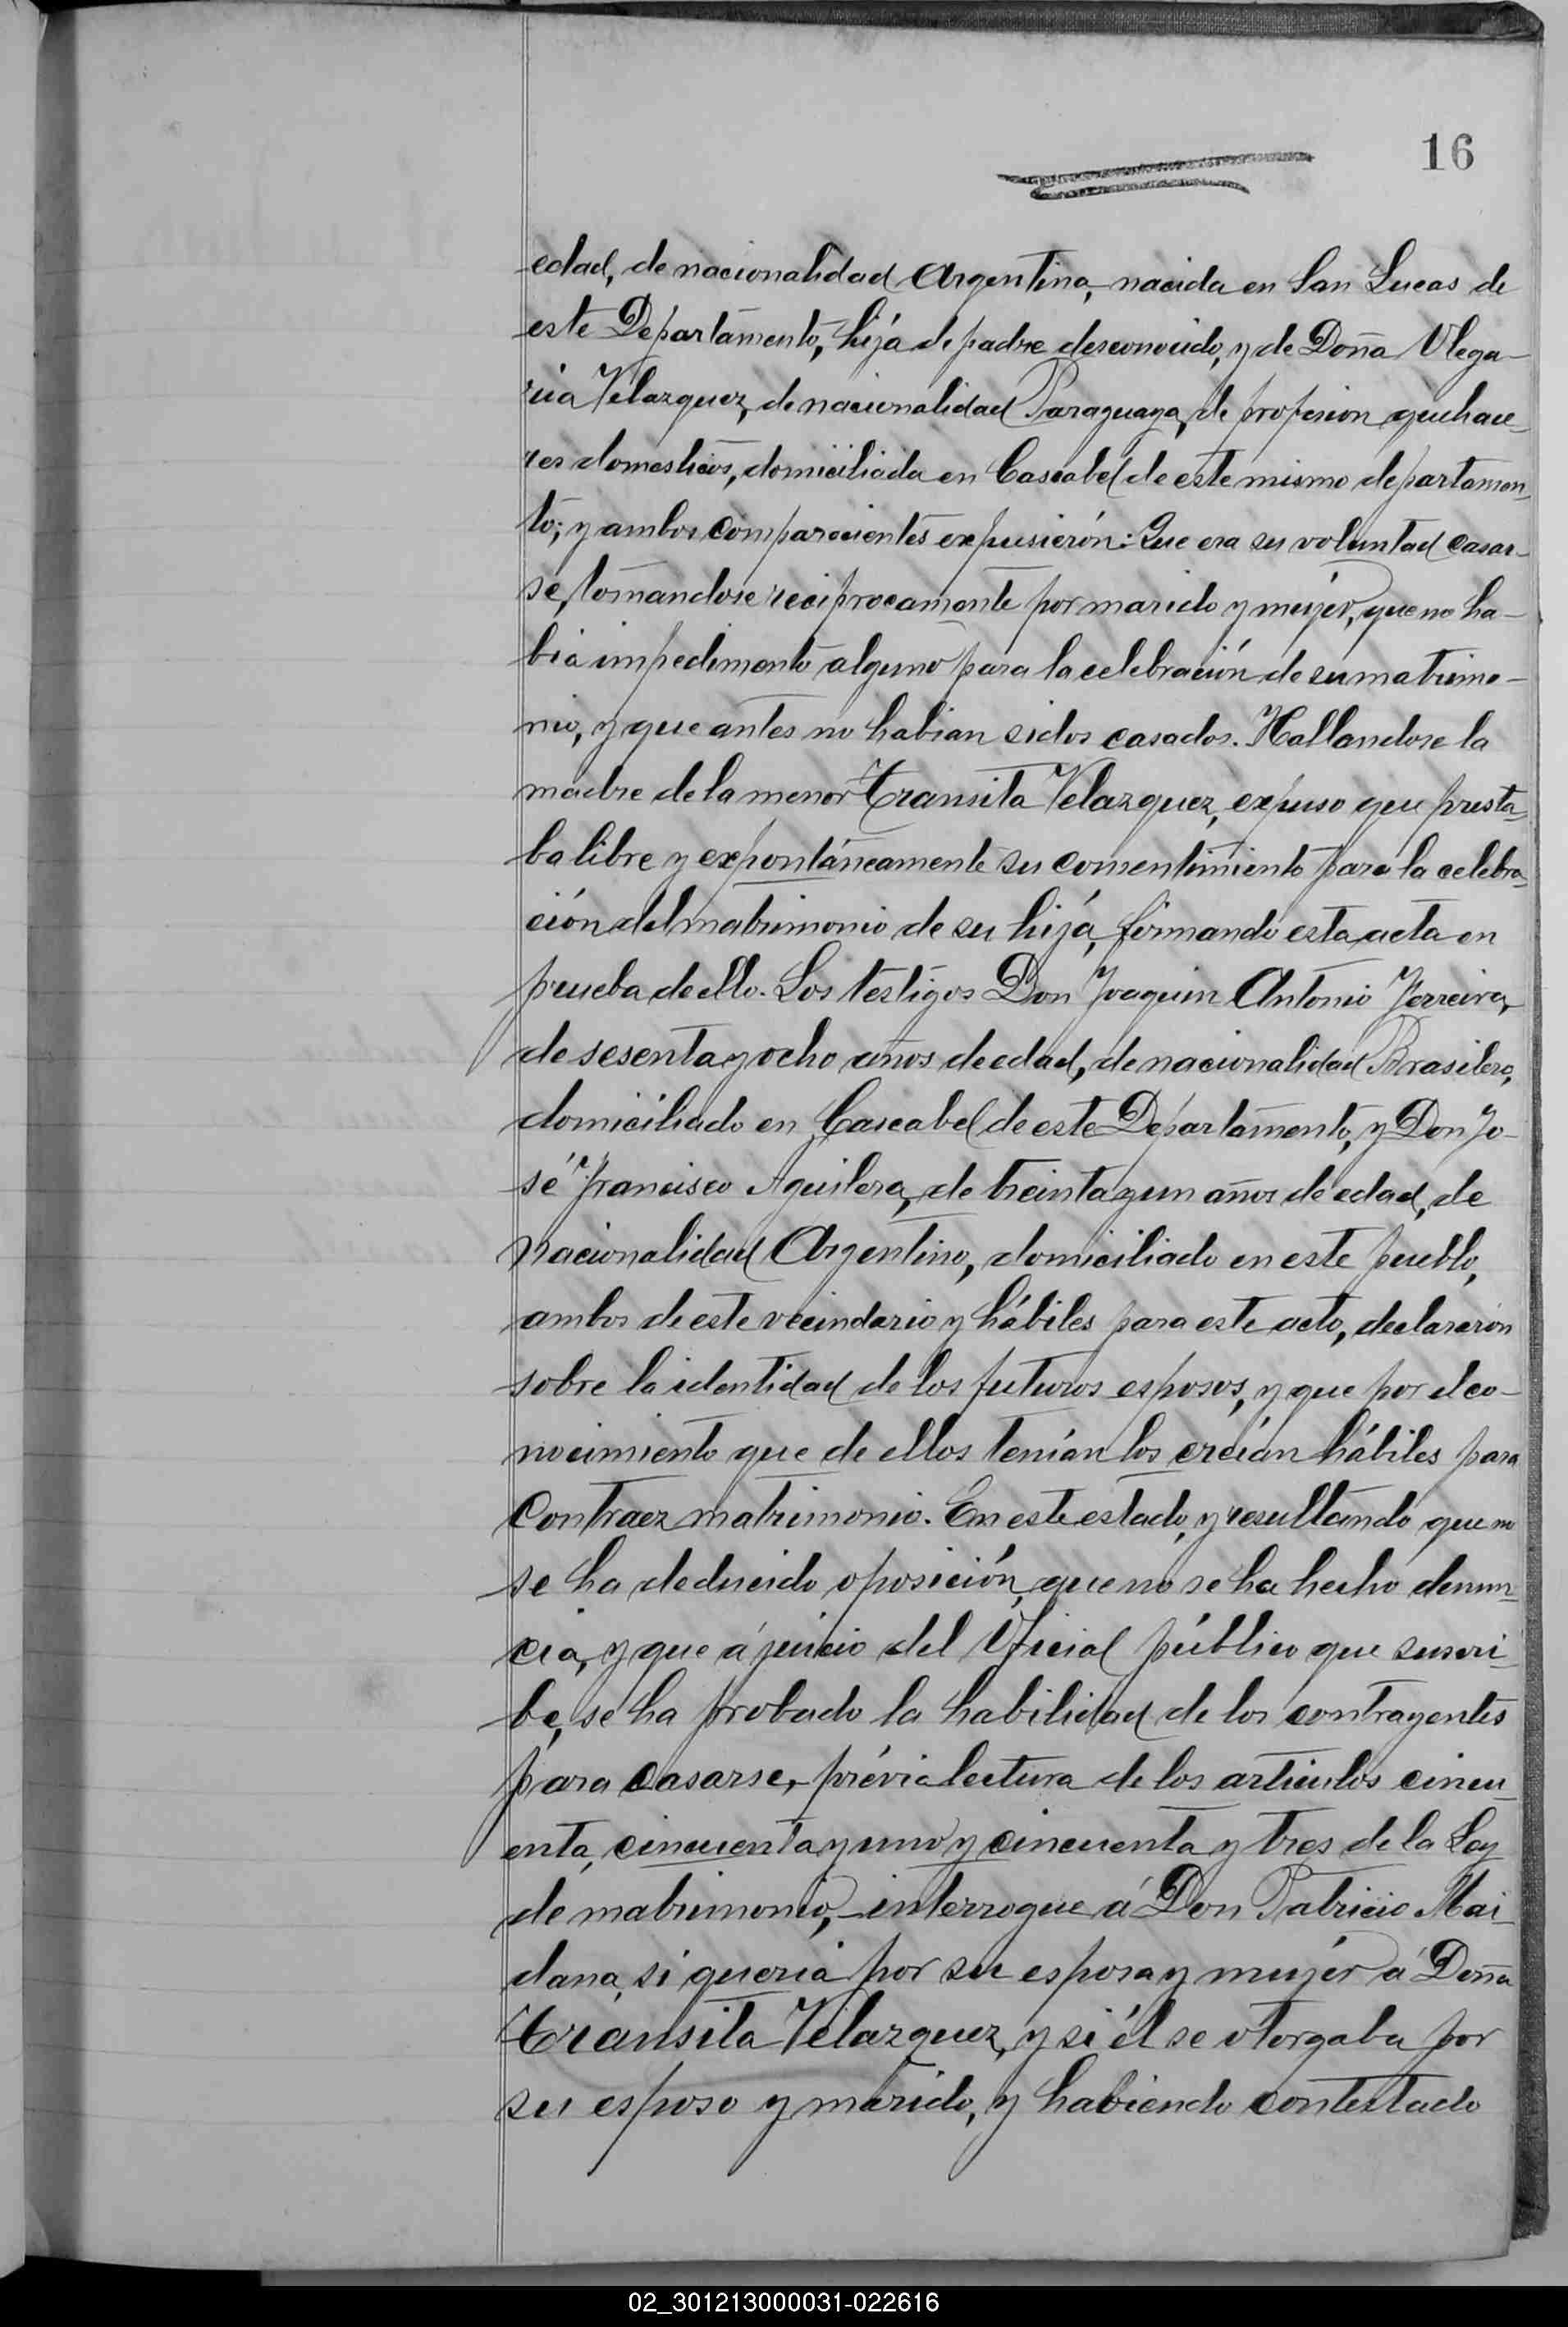 16
edad, de nacionalidad Argentina, nacida en San Lucas de
este Departamento, hija de padre desconocido, y de Doña Olega-
ria Velazquez, de nacionalidad Paraguaya, de profesion quehace-
res domesticos, domiciliada en Cascabel de este mismo departamen-
to; y ambos comparecientes expusierón: Que era su voluntad casar-
se, tomandose reciprocamente por marido y mujér, que no ha-
bia impedimento alguno para la celebración de su matrimo-
nio, y que antes no habian sidos casados. Hallandose la
madre de la menor Transita Velazquez, expuso que presta-
ba libre y expontáneamente su consentimiento para la celebra-
ción del matrimonio de su hija, firmando esta acta en
prueba de ello. Los testigos Don Joaquin Antonio Ferreira,
de sesenta y ocho años de edad, de nacionalidad Brasilero,
domiciliado en Cascabel de este Departamento, y Don Jo-
sé Francisco Aguilera, de treinta y un años de edad, de
nacionalidad Argentino, domiciliado en este pueblo,
ambos de este vecindario y hábiles para este acto, declararón
sobre la identidad de los futuros esposos, y que por el co-
nocimiento que de ellos tenían los creían hábiles para
contraer matrimonio. En este estado, y resultando que no
se ha deducido oposición, que no se ha hecho denun-
cia, y que á juicio del Oficial público que suscri-
be, se ha probado la habilidad de los contrayentes
para casarse, prévia lectura de los articulos cincu-
enta, cincuenta y uno y cincuenta y tres de la Ley
de matrimonio, interrogue á Don Patricio Mai-
dana, si queria por su esposa y mujér á Doña
Transita Velazquez, y si él se otorgaba por
su esposo y marido, y habiendo contestado
02_301213000031-022616